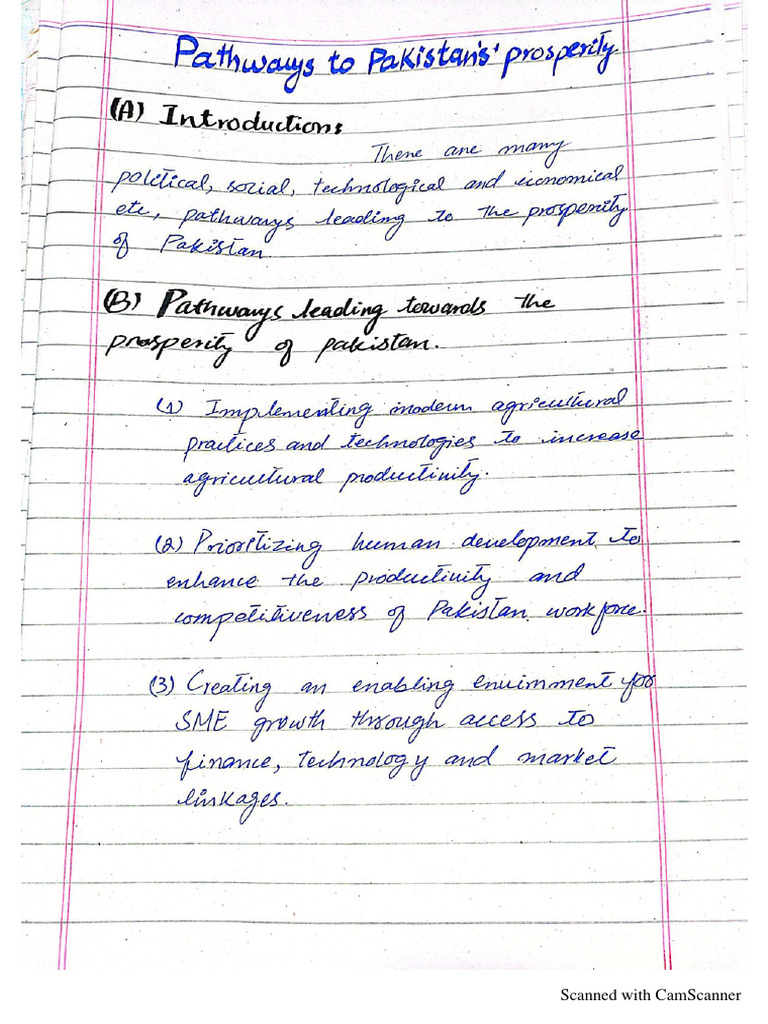 Pathways to Pakistan's' prosperity
(A) Introduction:
There are many
political, social, technological and economical
etc, pathways leading to the prosperity
of Pakistan.
(B) Pathways leading towards the
prosperity of pakistan.
(1) Implementing modern agricultural
practices and technologies to increase
agricultural productivity.
(2) Prioritizing human development to
enhance the productivity and
competitiveness of Pakistan workforce.
(3) Creating an enabling enuirnment for
SME growth through access to
finance, technology and market
linkages.
Scanned with CamScanner